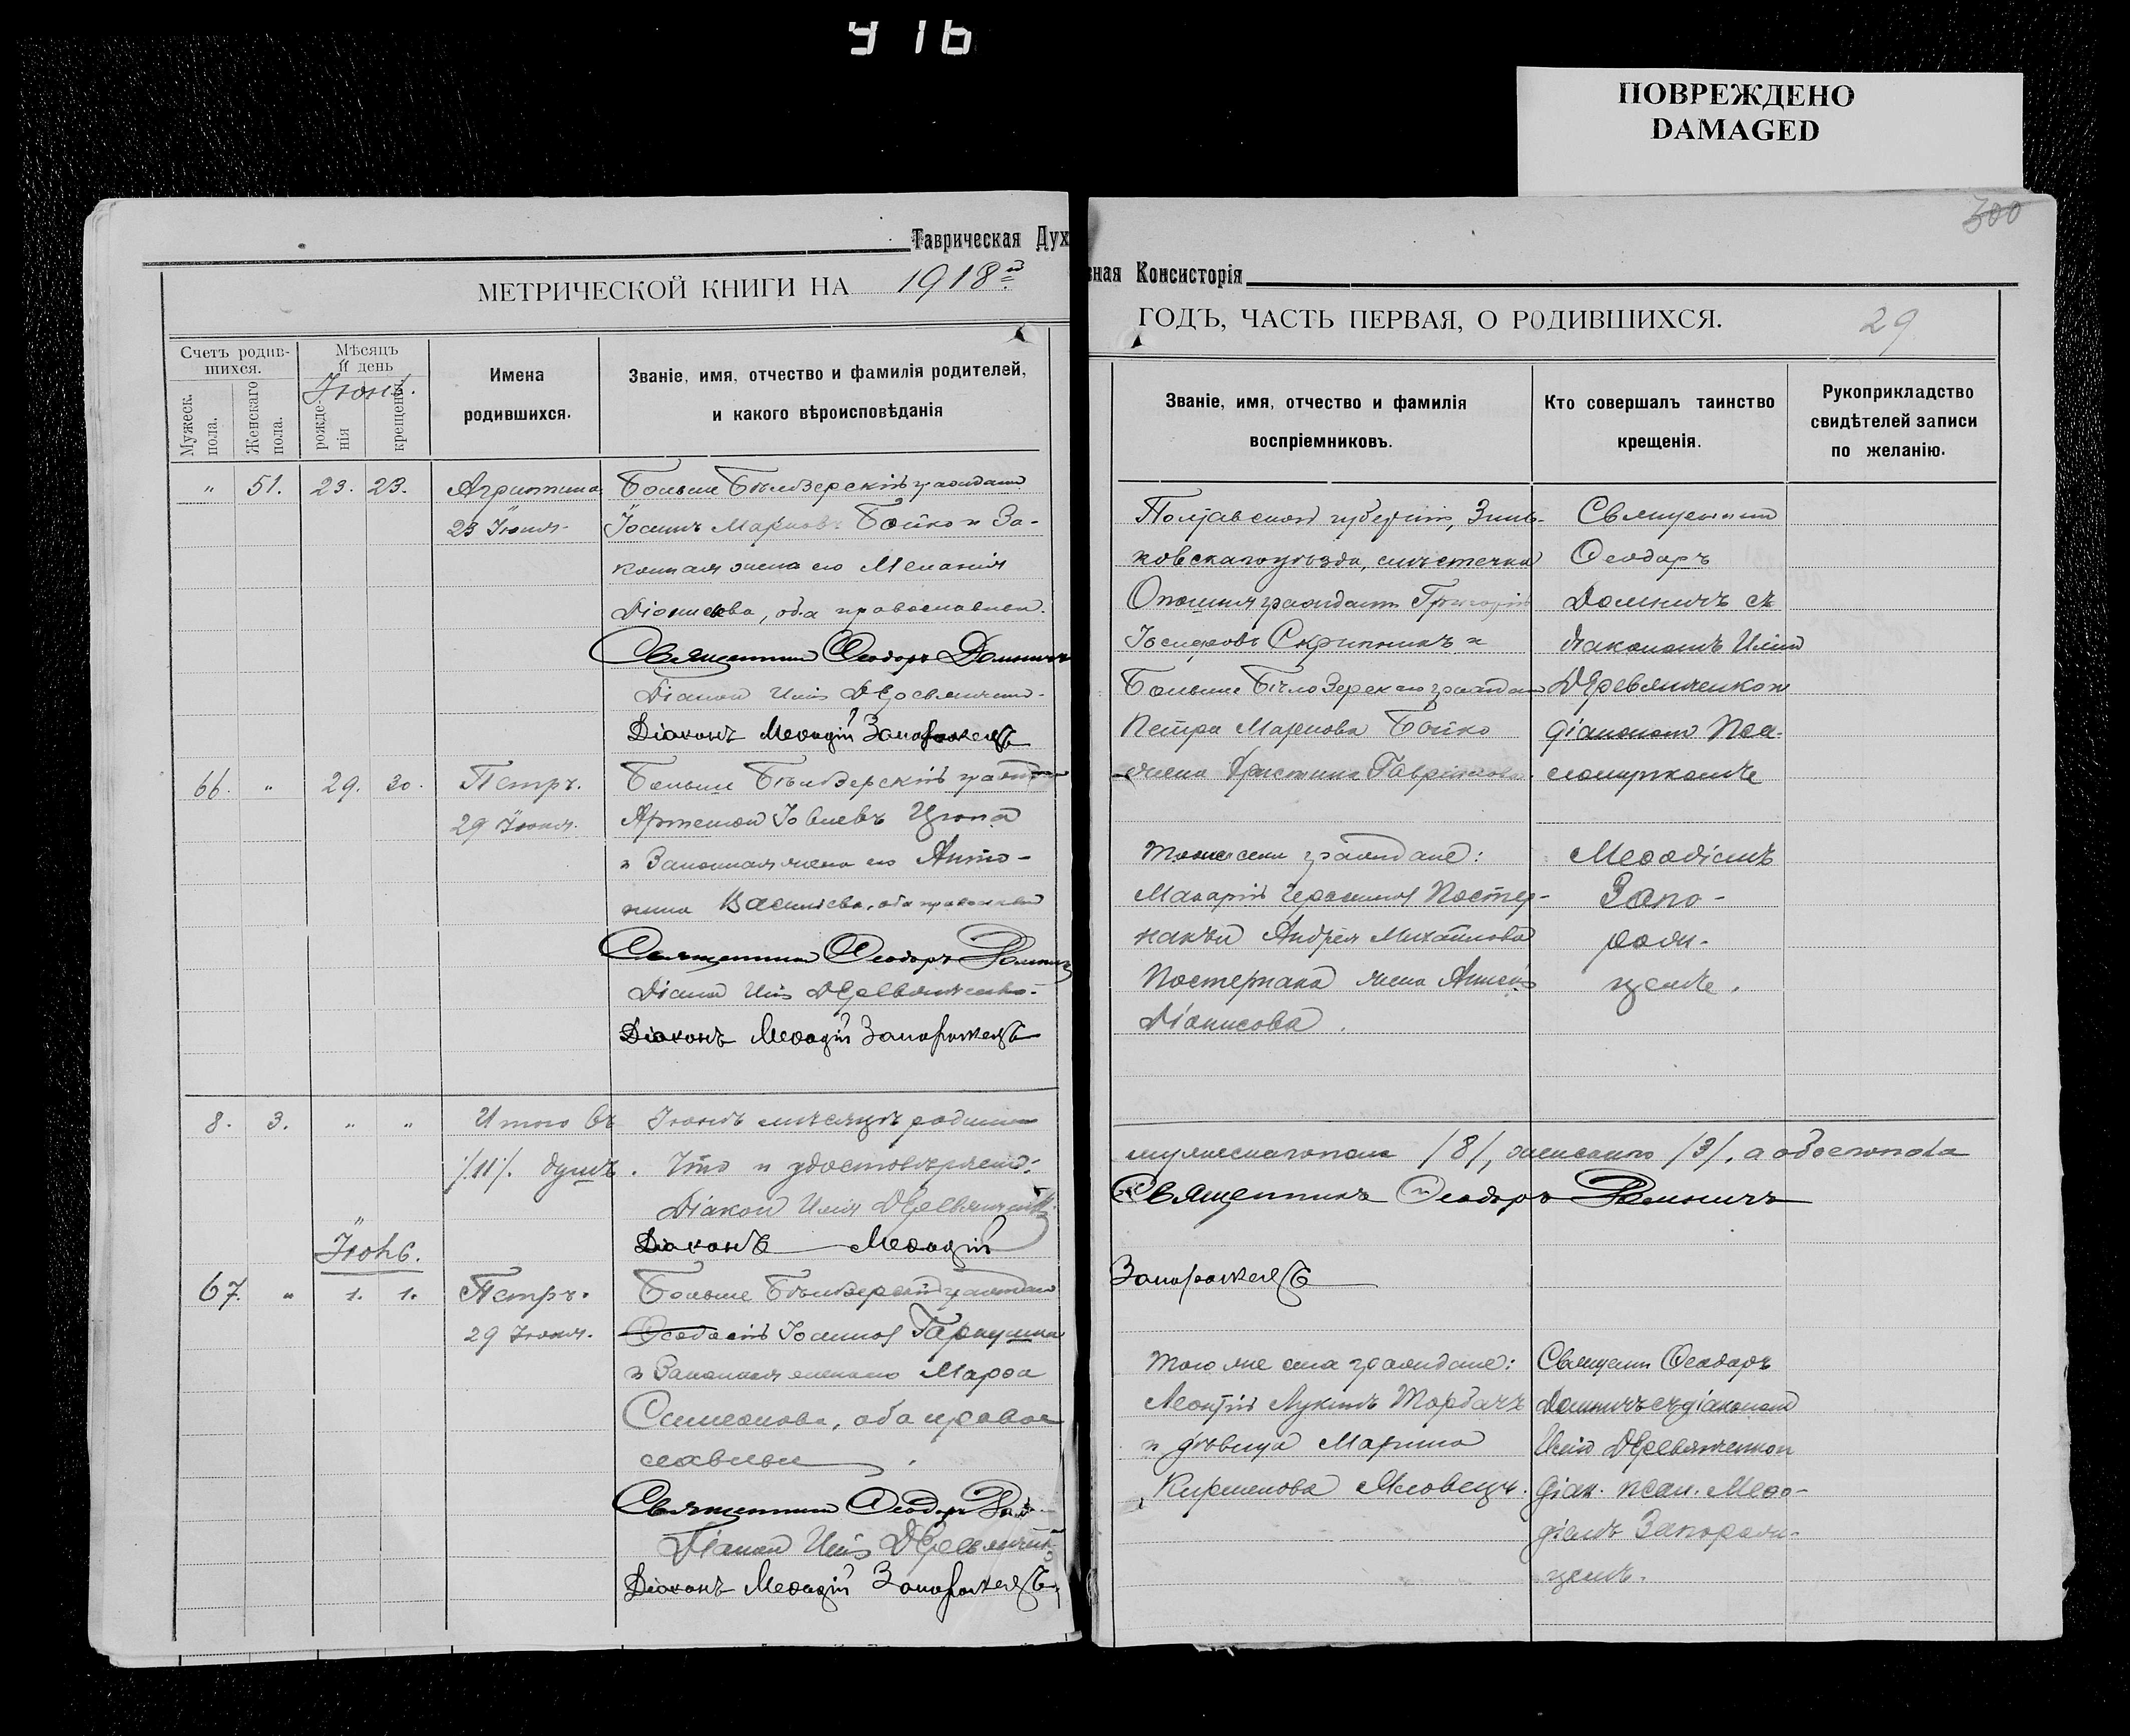 916
ПОВРЕЖДЕНО
DAMAGED
300
Таврическая Дух
вная Консисторія
МЕТРИЧЕСКОЙ КНИГИ НА 1918й
ГОДЪ, ЧАСТЬ ПЕРВАЯ, О РОДИВШИХСЯ.
29
Счетъ родив-
шихся.
Мужеск. пола.
Женскаго пола.
Мѣсяцъ
и день
Іюнь.
рожде-
нія
крещенія
Имена
родившихся.
Званіе, имя, отчество и фамилія родителей,
и какого вѣроисповѣданія
Званіе, имя, отчество и фамилія
воспріемниковъ.
Кто совершалъ таинство
крещенія.
Рукоприкладство
свидѣтелей записи
по желанію.
" 51. 23. 23. Агриппина
23 Іюня
Больше Бѣлозерскій гражданин
Іоаннъ Марковъ Бойко и За-
конная жена его Меланія
Діонисова, оба православн.
Священник Ѳеодоръ Домничъ
Діакон Илія Деревянченко
Діаконъ Меѳодій Запорожецъ
Полтавской губерніи, Зинь-
ковскаго уѣзда, мѣстечка
Опошня гражданин Григорій
Іосифовъ Скрипникъ и
Больше Бѣлозерскаго граждан
Петра Маркова Бойко
жена Христина Гавріилова
Священник
Ѳеодоръ
Домничъ съ
діакономъ Иліей
Деревянченкой
діакономъ Пса-
ломщикомъ
66. " 29. 30. Петръ.
29 Іюня.
Больше Бѣлозерскій граждан
Артемон Іовлевъ Цюпа
и Законная жена его Анто-
нина Васильева, оба православн
Священник Ѳеодоръ Домничъ
Діакон Илія Деревянченко
Діаконъ Меѳодій Запорожецъ
граждане:
Макарій Герасимов Постер-
накъ и Андрея Михайлова
Постернака жена
Діонисова.
Меѳодіемъ
Запо-
рож-
цемъ.
8. 3. " " Итого въ Іюнѣ мѣсяцѣ родилось
мужескаго пола /8/, женскаго /3/, а обоего пола
/11/. душъ. Что и удостовѣряемъ:
Священникъ Ѳеодоръ Домничъ
Діакон Илія Деревянченко
Діаконъ Меѳодій
Запорожецъ
Іюль.
67. " 1. 1. Петръ.
29 Іюня.
Больше Бѣлозерскій граждан
Ѳеодосій Іоаннов Гаркушин
и Законная жена его Марѳа
Симеонова, оба право-
славные.
Священник Ѳеодоръ Дом
Діакон Илія Деревянченко
Діаконъ Меѳодій Запорожецъ
Того же села граждане:
Леонтій Лукинъ Торбачъ
и дѣвица Марина
Священ Ѳеодоръ
Домничъ съ діакономъ
Иліей Деревянченкой
діак. псал. Меѳо-
діемъ Запорож-
цемъ.